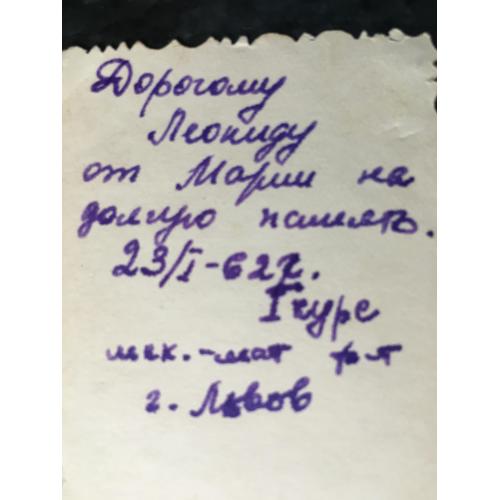 Дорогому
Леониду
от Марии на
долгую память.
23/I-62г.
I курс
мех.-мат ф-т
г. Львов